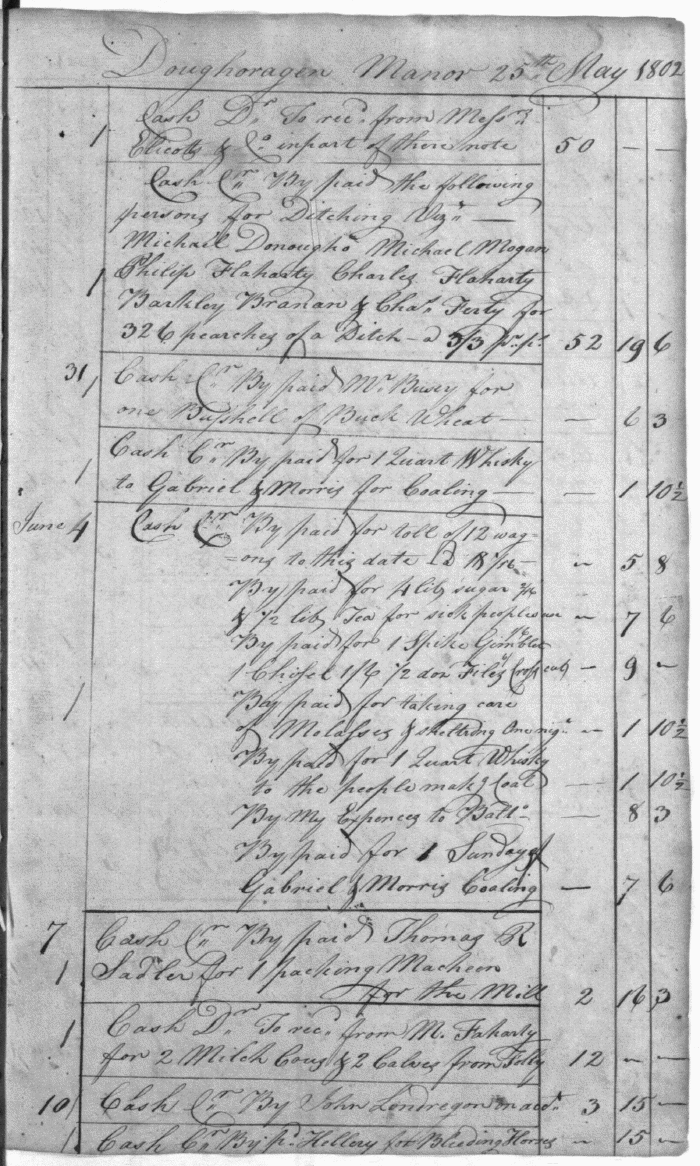 Doughoragen Manor 25th May 1802
Cash Dr To recd from Messrs
1 Elicotts & Co inpart of there note 50 — —
Cash Cr By paid the following
persons for Ditching Viz —
Michail Donougho Michael Mogan
1 Philip Flaharty Charles Flaharty
Barkley Branan & Chas Ferty for
326 pearches of a Ditch a 3/3 pr pr 52 19 6
31 1 Cash Cr By paid Mr Busey for
one Bushell of Buck Wheat — — 6 3
Cash Cr By paid for 1 Quart Whisky
1 to Gabriel & Morris for Coaling — — 1 10½
June 4 Cash Cr By paid for toll of 12 wag=
=ons to this date — 5 8
By paid for 4 lib sugar
& 1/2 lib Tea for sick people — 7 6
By paid for 1 Spike Gimblet
1 Chisel 1/6 1/2 doz Files Cross cuts — 9 —
1 Bay paid for taking care
of Molasses & sheltring One nigt — 1 10½
By paid for 1 Quart Whisky
to the people makg Coal — 1 10½
By My Expences to Balto — 8 3
By paid for 1 Sunday of
Gabriel & Morris Coaling — 7 6
7 Cash Cr By paid Thomas R
1 Sadler for 1 packing Macheen
for the Mill 2 16 3
1 Cash Dr To recd from M. Faharty
for 2 Milch Cows & 2 Calves from Folly 12 — —
10 1 Cash Cr By John Londregon on acct 3 15 —
1 Cash Cr By pd Hellery for Bleeding Horses — 15 —